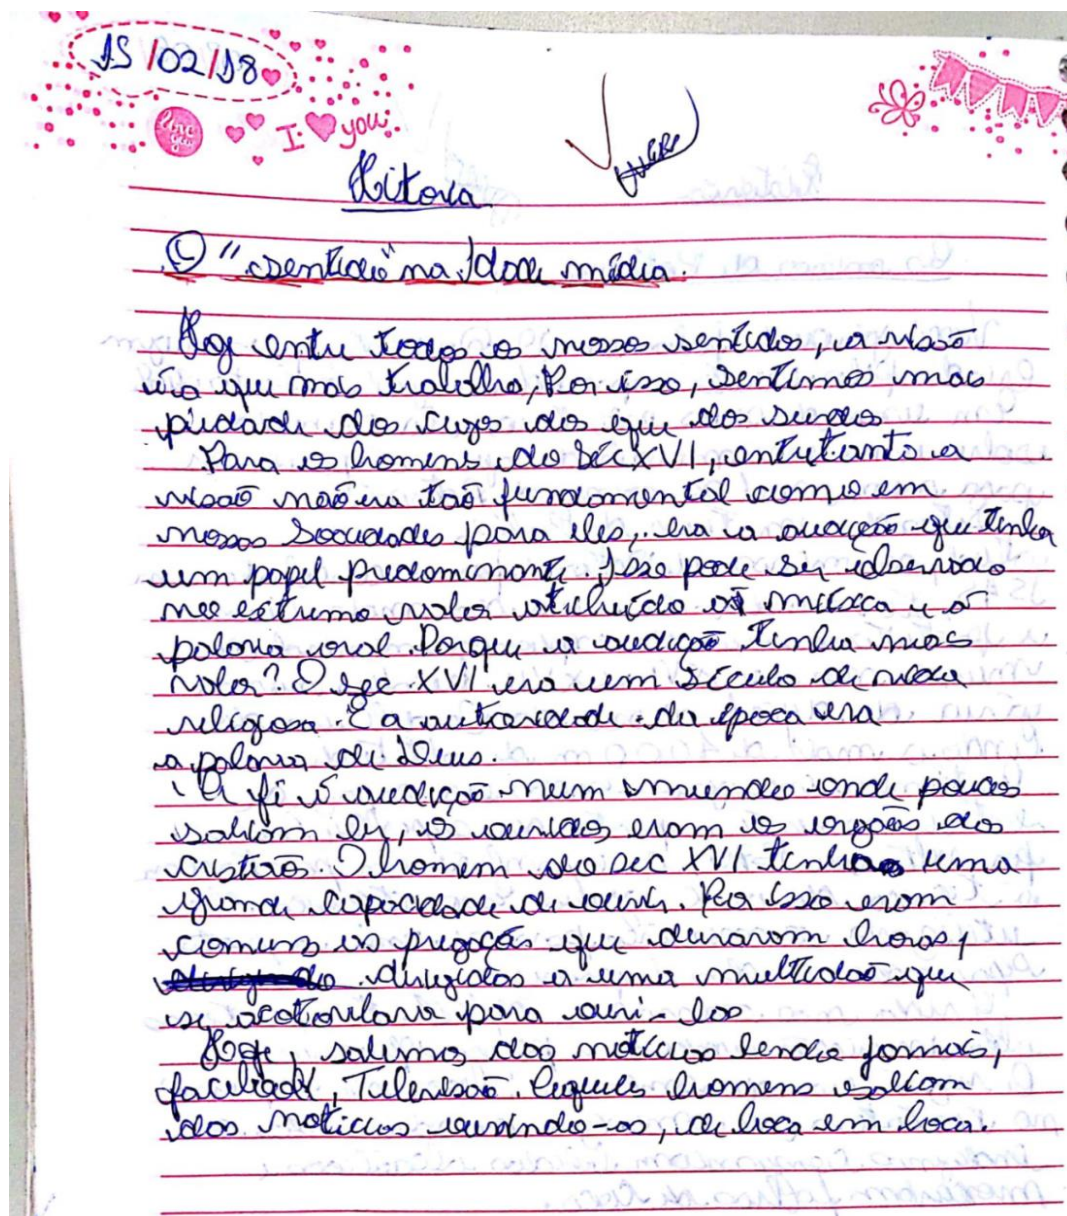 15/02/18
I ♥ you
Hitoria
O "sentido" na Idade média.
Hoje entre todos os nossos sentidos, a visão
é a que mais trabalha, Por isso, sentimos mais
piedade dos cegos do que dos surdos
Para os homens do Séc XVI, entretanto a
visão não era tão fundamental como em
nossos Sociedades para eles, era a audição que tinha
um papel predominante. Isso pode ser observado
no estremo valor atribuído a música e a
palavra oral. Porque a audição tinha mais
valor? O sec XVI era um século de vida
religiosa. E a autoridade da época era
a palavra de Deus.
A fé é audição num mundo onde poucos
sabiam ler, os ouvidos eram os orgãos dos
cristãos. O homem do sec XVI tinha uma
grande capacidade de ouvir. Por isso eram
comuns as pregações que duravam horas,
dirigidos a uma multidão que
se acotovelava para ouvi-los
Hoje, sabemos das notícias lendo jornais,
facebook, Televisão. Aqueles homens sabiam
das noticias ouvindo-as, de boca em boca.